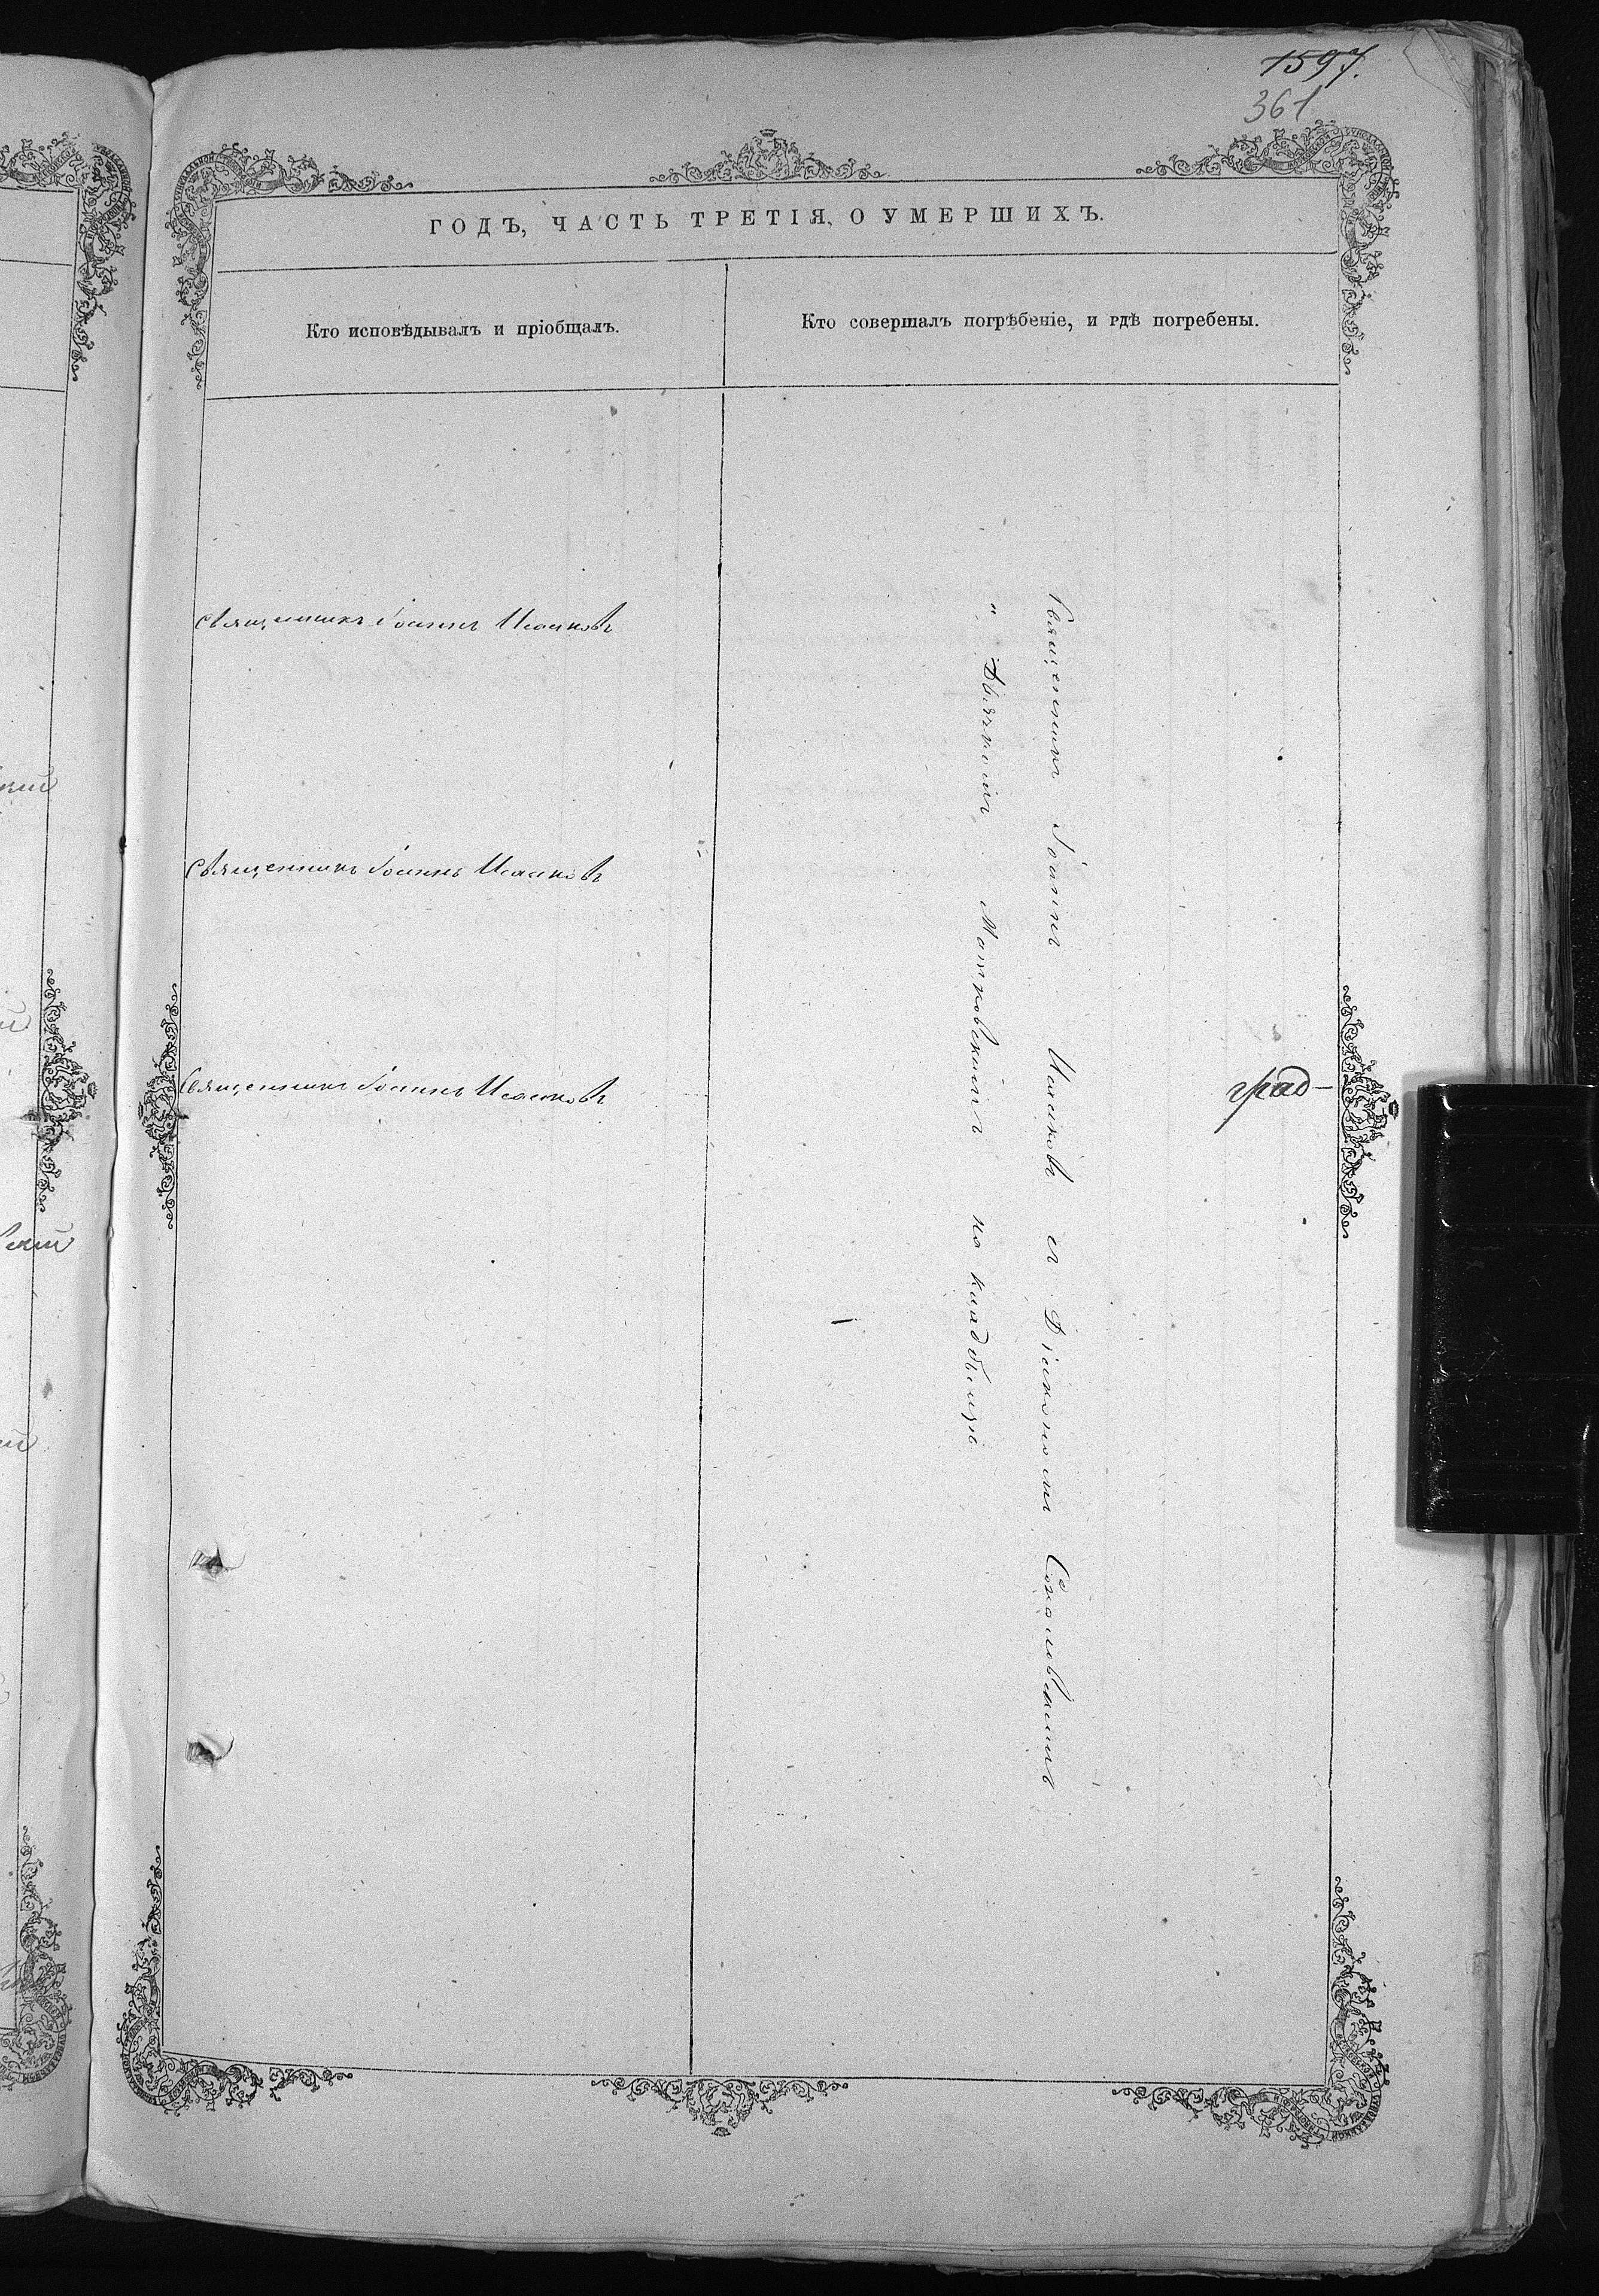 1597.
361
ГОДЪ, ЧАСТЬ ТРЕТІЯ, О УМЕРШИХЪ.
Кто исповѣдывалъ и пріобщалъ.
Кто совершалъ погрѣбеніе, и гдѣ погребены.
Священникъ Іоаннъ Исаковъ
Священникъ Іоаннъ Исаковъ
Священникъ Іоаннъ Исаковъ
Священникъ Іоаннъ Исаковъ и Діакономъ Соколовскимъ
на кладбищѣ
град-